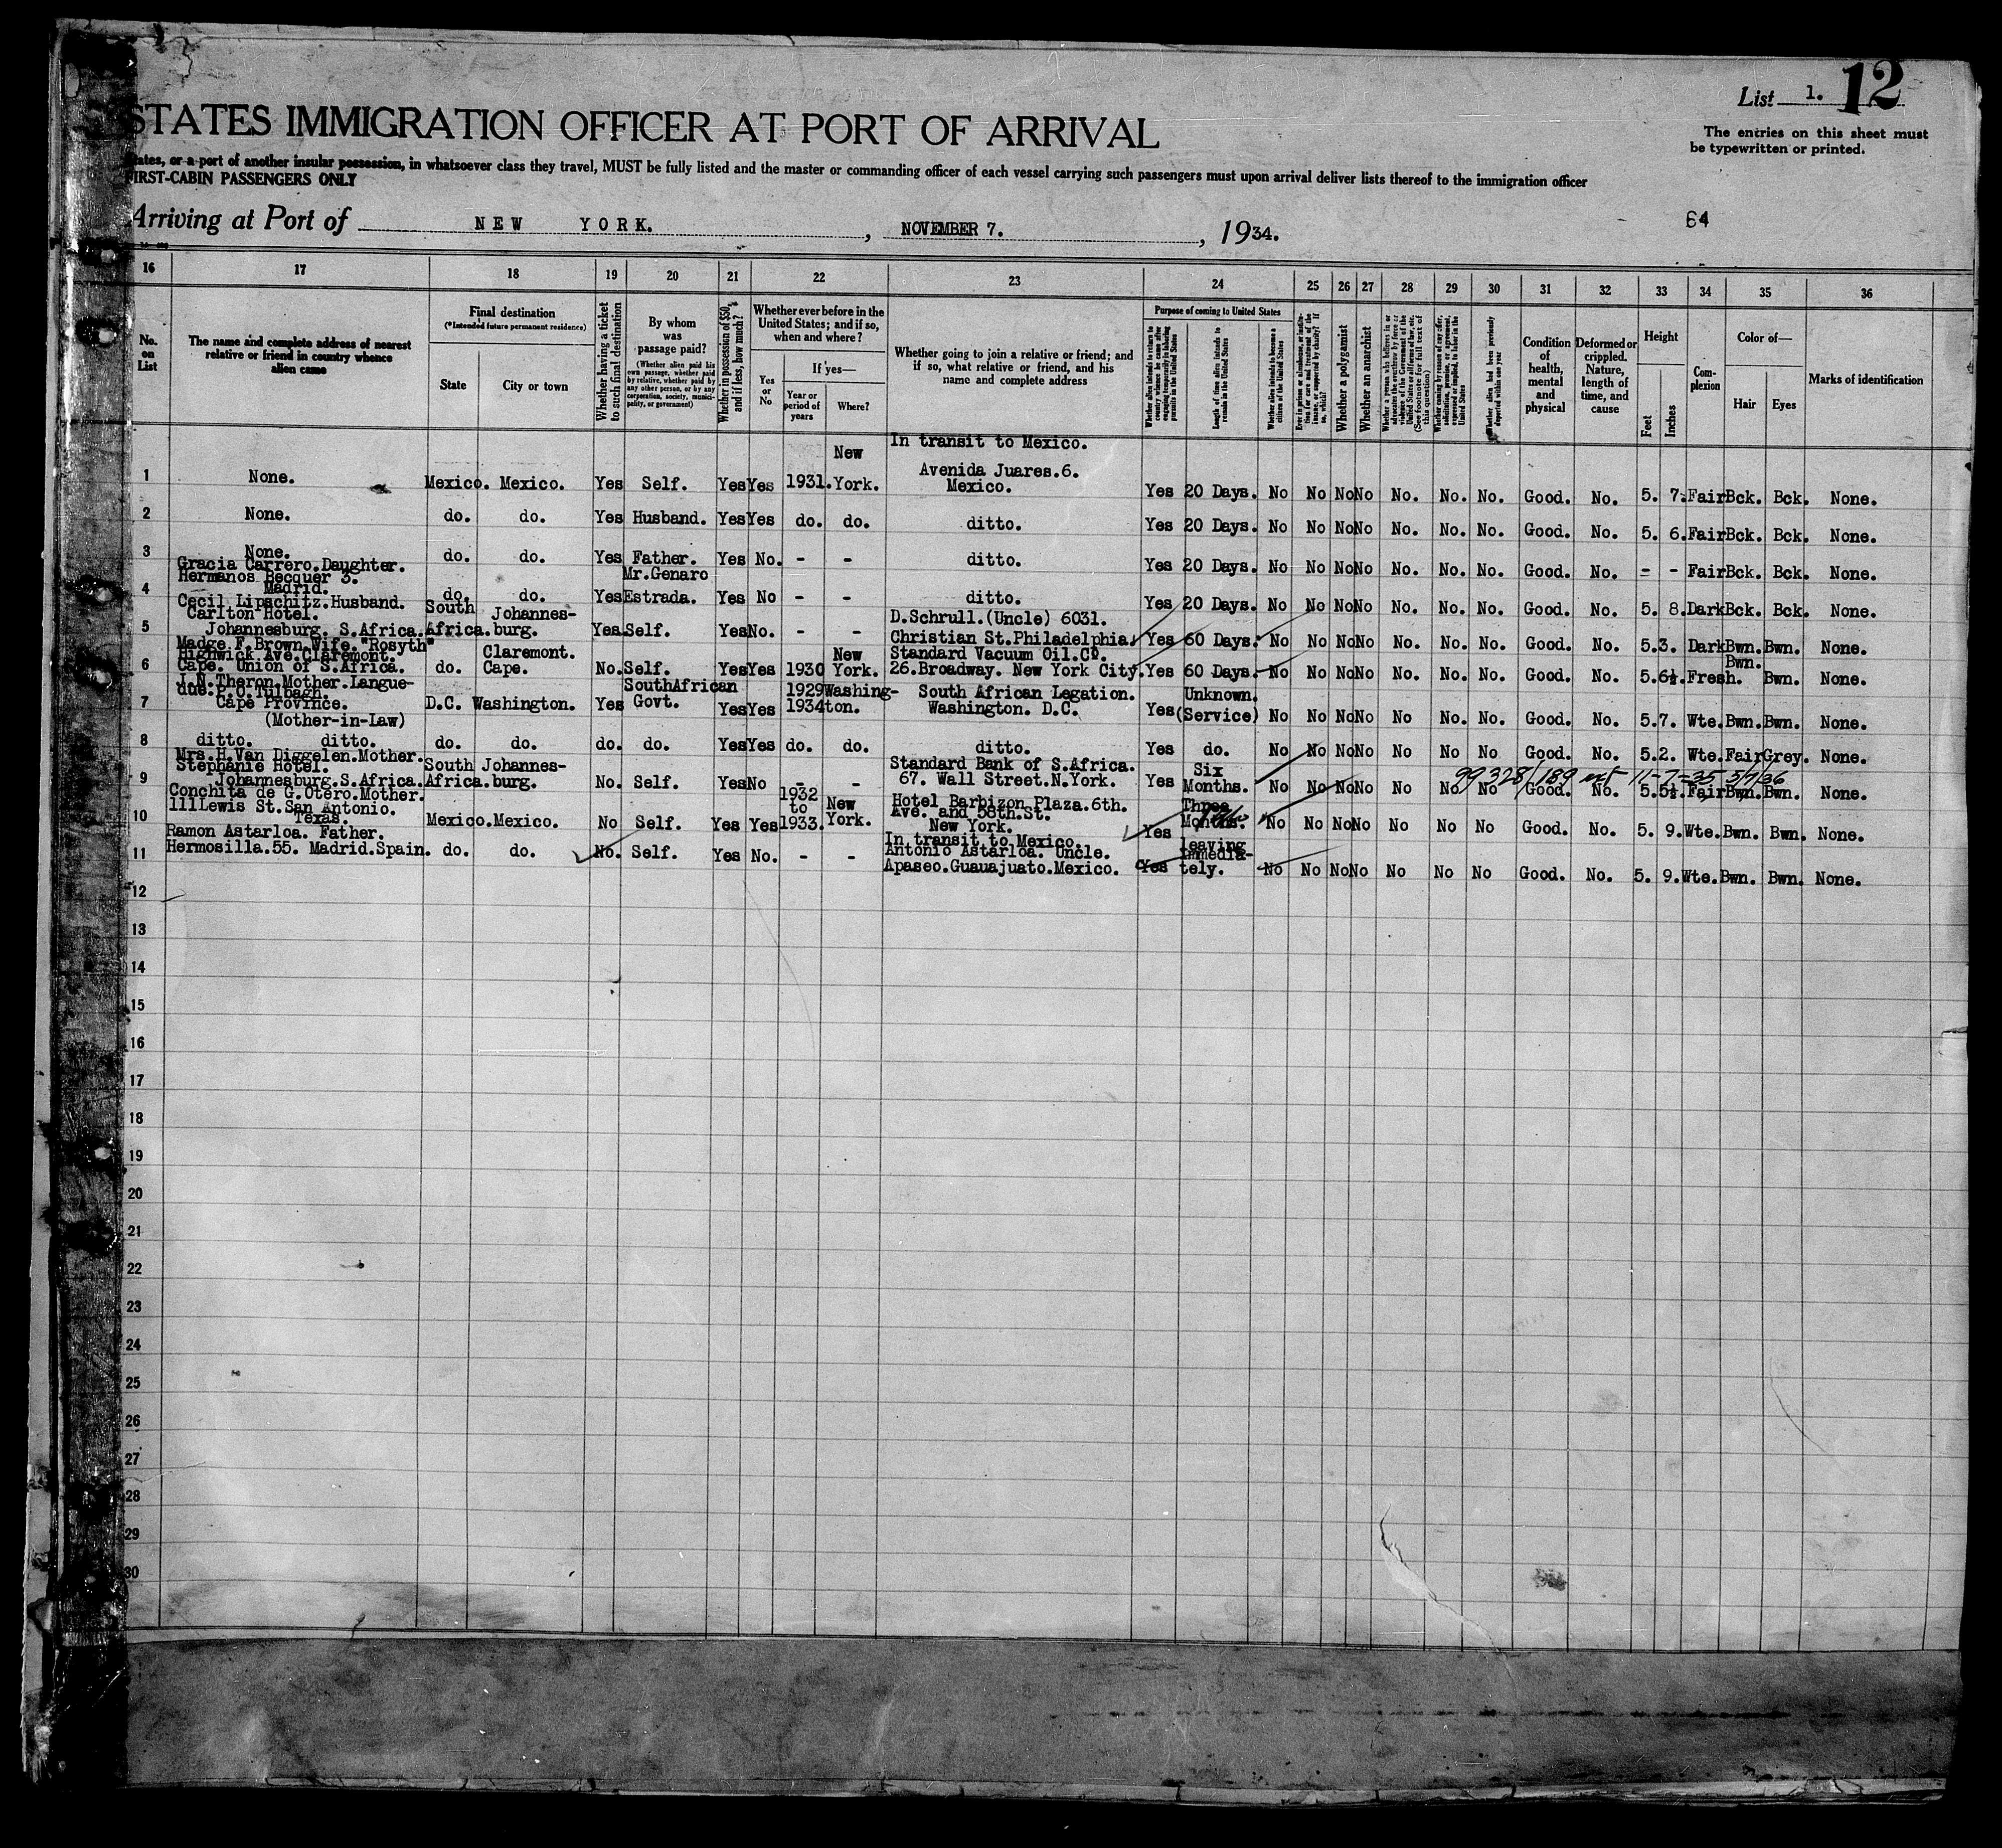 List 1. 12
STATES IMMIGRATION OFFICER AT PORT OF ARRIVAL
The entries on this sheet must
be typewritten or printed.
States, or a port of another insular possession, in whatsoever class they travel, MUST be fully listed and the master or commanding officer of each vessel carrying such passengers must upon arrival deliver lists thereof to the immigration officer
FIRST-CABIN PASSENGERS ONLY
Arriving at Port of NEW YORK. , NOVEMBER 7. , 1934.
64
16 17 18 19 20 21 22 23 24 25 26 27 28 29 30 31 32 33 34 35 36
No. on List
The name and complete address of nearest relative or friend in country whence alien came
Final destination
(*Intended future permanent residence)
State
City or town
Whether having a ticket to such final destination
By whom was passage paid?
(Whether alien paid his own passage, whether paid by relative, whether paid by any other person, or by any corporation, society, municipality, or government)
Whether in possession of $50, and if less, how much?
Whether ever before in the United States; and if so, when and where?
Yes or No
If yes—
Year or period of years
Where?
Whether going to join a relative or friend; and if so, what relative or friend, and his name and complete address
Purpose of coming to United States
Whether alien intends to return to country whence he came after engaging temporarily in laboring pursuits in the United States
Length of time alien intends to remain in the United States
Whether alien intends to become a citizen of the United States
Whether a polygamist
Whether an anarchist
Whether alien had been previously deported within one year
Condition of health, mental and physical
Deformed or crippled. Nature, length of time, and cause
Height
Feet
Inches
Complexion
Color of—
Hair
Eyes
Marks of identification
1 None. Mexico. Mexico. Yes Self. Yes Yes 1931. New York. In transit to Mexico. Avenida Juares.6. Mexico. Yes 20 Days. No No No No No. No. No. Good. No. 5. 7. Fair Bck. Bck. None.
2 None. do. do. Yes Husband. Yes Yes do. do. ditto. Yes 20 Days. No No No No No. No. No. Good. No. 5. 6. Fair Bck. Bck. None.
3 None. do. do. Yes Father. Yes No. - - ditto. Yes 20 Days. No No No No No. No. No. Good. No. - - Fair Bck. Bck. None.
4 Gracia Carrero.Daughter. Hermanos Becquer 3. Madrid. do. do. Yes Mr.Genaro Estrada. Yes No - - ditto. Yes 20 Days. No No No No No. No. No. Good. No. 5. 8. Dark Bck. Bck. None.
5 Cecil Lipschitz.Husband. Carlton Hotel. Johannesburg. S.Africa. South Africa. Johannes-burg. Yes. Self. Yes No. - - D.Schrull.(Uncle) 6031. Christian St.Philadelphia. Yes 60 Days. No No No No No. No. No. Good. No. 5.3. Dark Bwn. Bwn. None.
6 Madge.F.Brown.Wife."Rosyth" Highwick Ave.Claremont. Cape. Union of S.Africa. do. Claremont. Cape. No. Self. Yes Yes 1930 New York. Standard Vacuum Oil.Co. 26.Broadway. New York City. Yes 60 Days. No No No No No. No. No. Good. No. 5.6½. Fresh. Bwn. Bwn. None.
7 J.N.Theron.Mother.Langue-due.P.O.Tulbagh. Cape Province. D.C. Washington. Yes South African Govt. Yes Yes 1929 1934 Washing-ton. South African Legation. Washington. D.C. Yes Unknown. (Service) No No No No No No. No. Good. No. 5.7. Wte. Bwn. Bwn. None.
8 (Mother-in-Law) ditto. ditto. do. do. do. do. Yes Yes do. do. ditto. Yes do. No No No No No No No Good. No. 5.2. Wte. Fair Grey. None.
99328/189 11-7-35 5/7/36
9 Mrs.H.Van Diggelen.Mother. Stephanie Hotel. Johannesburg.S.Africa. South Africa. Johannes-burg. No. Self. Yes No - - Standard Bank of S.Africa. 67. Wall Street.N.York. Yes Six Months. No No No No No No No Good. No. 5.5½. Fair Bwn. Bwn. None.
10 Conchita de G.Otero.Mother. 111Lewis St.San Antonio. Texas. Mexico. Mexico. No Self. Yes Yes 1932 to 1933. New York. Hotel Barbizon Plaza.6th. Ave. and 58th.St. New York. Yes Three Months. No No No No No No No Good. No. 5. 9. Wte. Bwn. Bwn. None.
11 Ramon Astarloa. Father. Hermosilla.55. Madrid.Spain. do. do. No. Self. Yes No. - - In transit to Mexico. Antonio Astarloa. Uncle. Apaseo.Guauajuato.Mexico. Yes leaving immedia-tely. No No No No No No No Good. No. 5. 9. Wte. Bwn. Bwn. None.
12
13
14
15
16
17
18
19
20
21
22
23
24
25
26
27
28
29
30